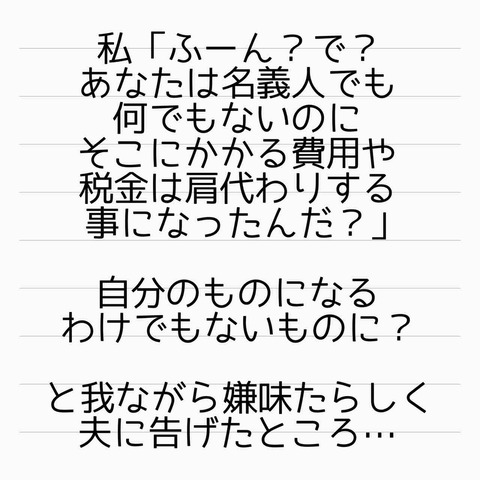 私「ふーん？で？
あなたは名義人でも
何でもないのに
そこにかかる費用や
税金は肩代わりする
事になったんだ？」
自分のものになる
わけでもないものに？
と我ながら嫌味たらしく
夫に告げたところ…